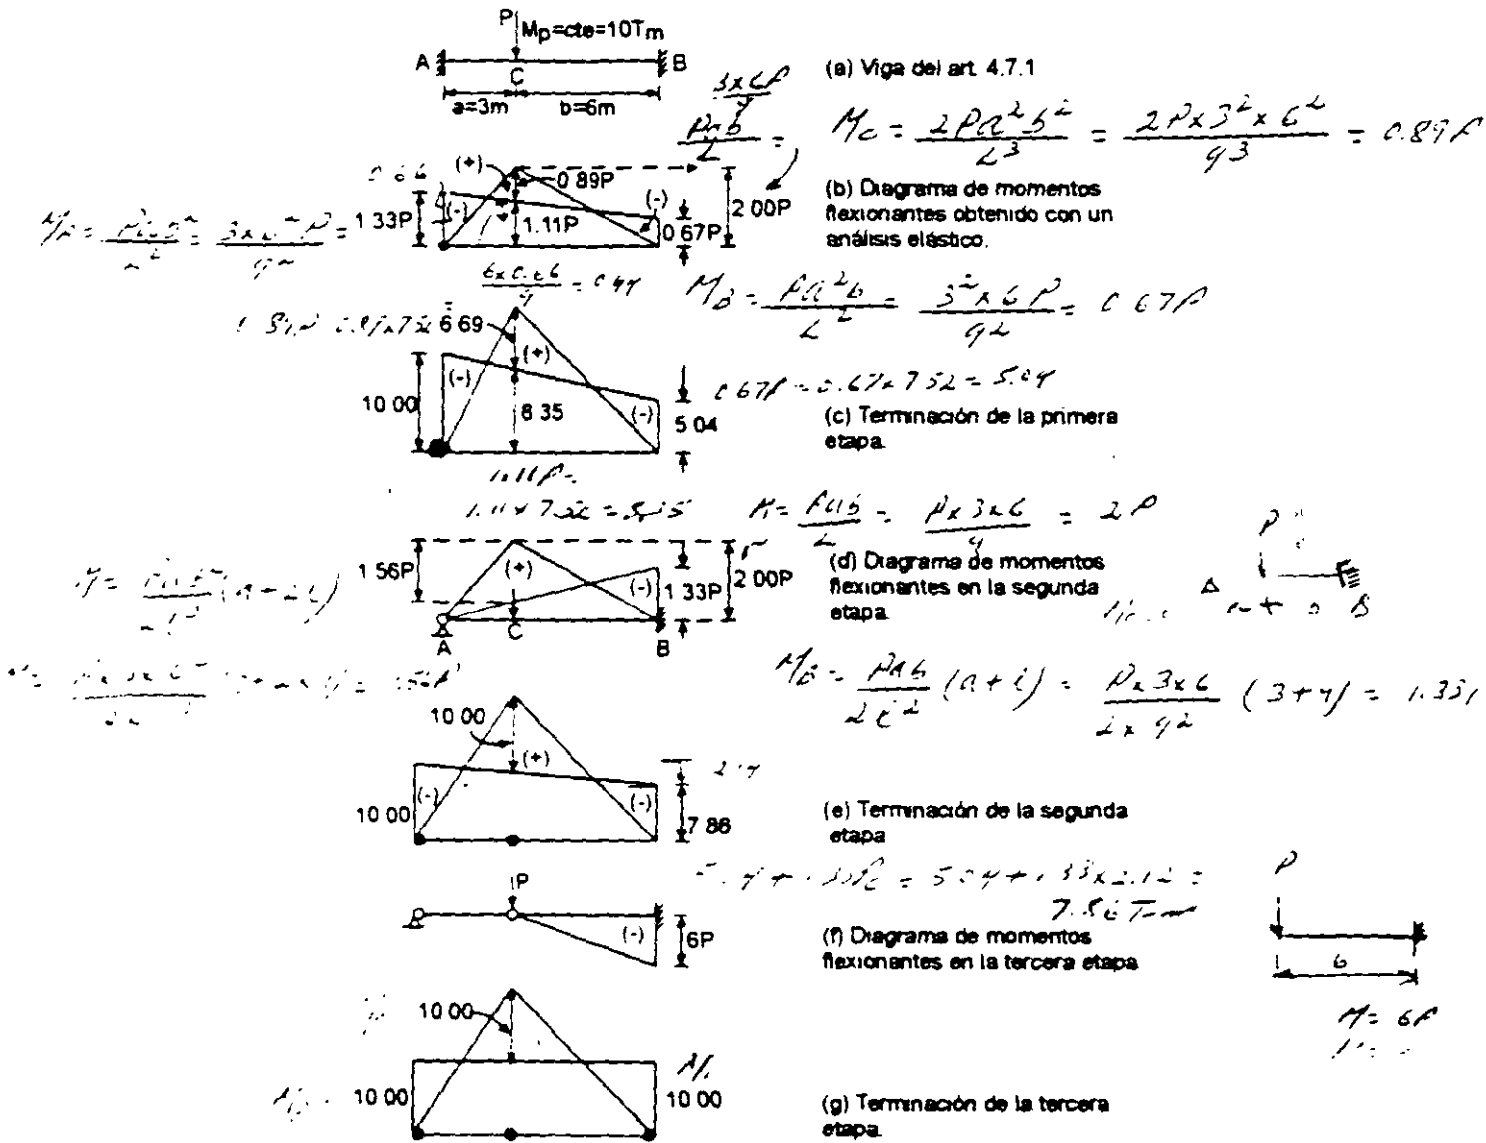 P
Mp=cte=10Tm
A
B
C
a=3m
b=6m
(a) Viga del art. 4.7.1
3x6P
Pab / L =
Mc = 2Pa²b² / L³ = 2Px3²x6² / 9³ = 0.89P
(+)
0 89P
(-)
1 33P
(-)
1.11P
0 67P
2 00P
(b) Diagrama de momentos
flexionantes obtenido con un
análisis elástico.
6x0.66 / 9 = 0.44
MB = Pa²b / L² = 3²x6P / 9² = 0 67P
6 69
(+)
(-)
10 00
8 35
(-)
5 04
0 67P = 0.67x7 52 = 5.04
(c) Terminación de la primera
etapa.
1.11P =
1.11x7.52 = 8.35
M = Pab / L = Px3x6 / 9 = 2P
1 56P
(+)
(-)
1 33P
2 00P
A
C
B
(d) Diagrama de momentos
flexionantes en la segunda
etapa.
P
B
MB = Pab / 2L² (a+L) = Px3x6 / 2x9² (3+9) = 1.33P
10 00
(+)
(-)
10 00
(-)
7 86
(e) Terminación de la segunda
etapa
= 5.04+1.33x2.12 =
7.86 T-m
P
(-)
6P
(f) Diagrama de momentos
flexionantes en la tercera etapa
P
6
M = 6P
10 00
10 00
10 00
(g) Terminación de la tercera
etapa.